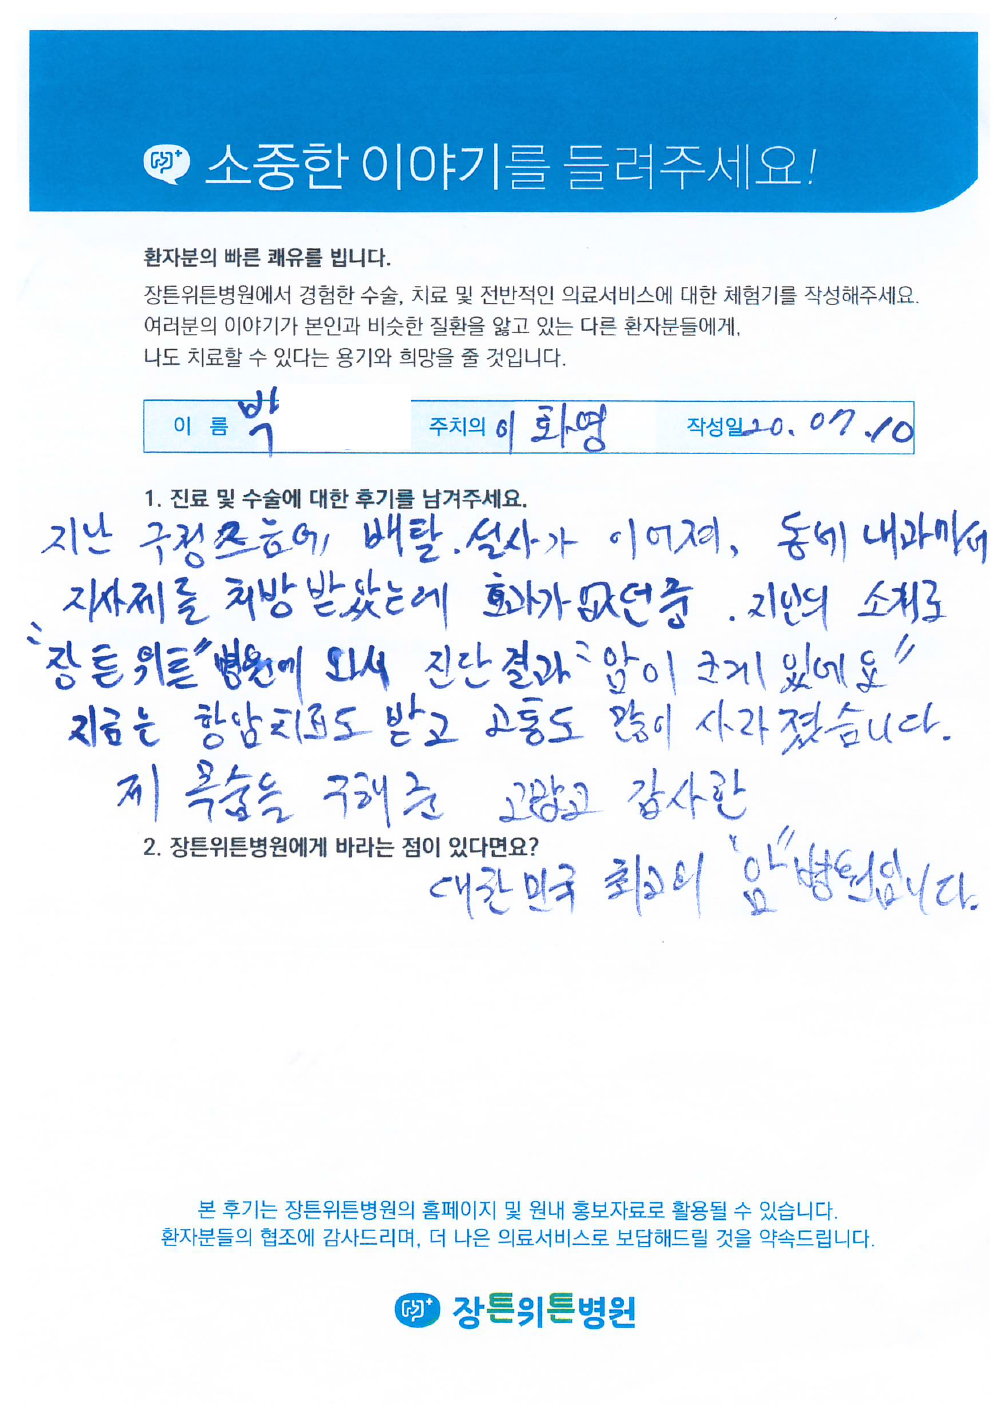 소중한 이야기를 들려주세요!
환자분의 빠른 쾌유를 빕니다.
장튼위튼병원에서 경험한 수술, 치료 및 전반적인 의료서비스에 대한 체험기를 작성해주세요.
여러분의 이야기가 본인과 비슷한 질환을 앓고 있는 다른 환자분들에게,
나도 치료할 수 있다는 용기와 희망을 줄 것입니다.
이 름 박 주치의 이화영 작성일 20. 07. 10
1. 진료 및 수술에 대한 후기를 남겨주세요.
지난 구정즈음에, 배탈.설사가 이어져, 동네 내과에서
지사제를 처방 받았는데 효과가 없던중. 지인의 소개로
"장튼위튼"병원에 와서 진단결과 "암이 크게 있네요"
지금은 항암치료도 받고 고통도 많이 사라졌습니다.
제 목숨을 구해준 고맙고 감사한
2. 장튼위튼병원에게 바라는 점이 있다면요?
대한민국 최고의 "암"병원입니다.
본 후기는 장튼위튼병원의 홈페이지 및 원내 홍보자료로 활용될 수 있습니다.
환자분들의 협조에 감사드리며, 더 나은 의료서비스로 보답해드릴 것을 약속드립니다.
장튼위튼병원